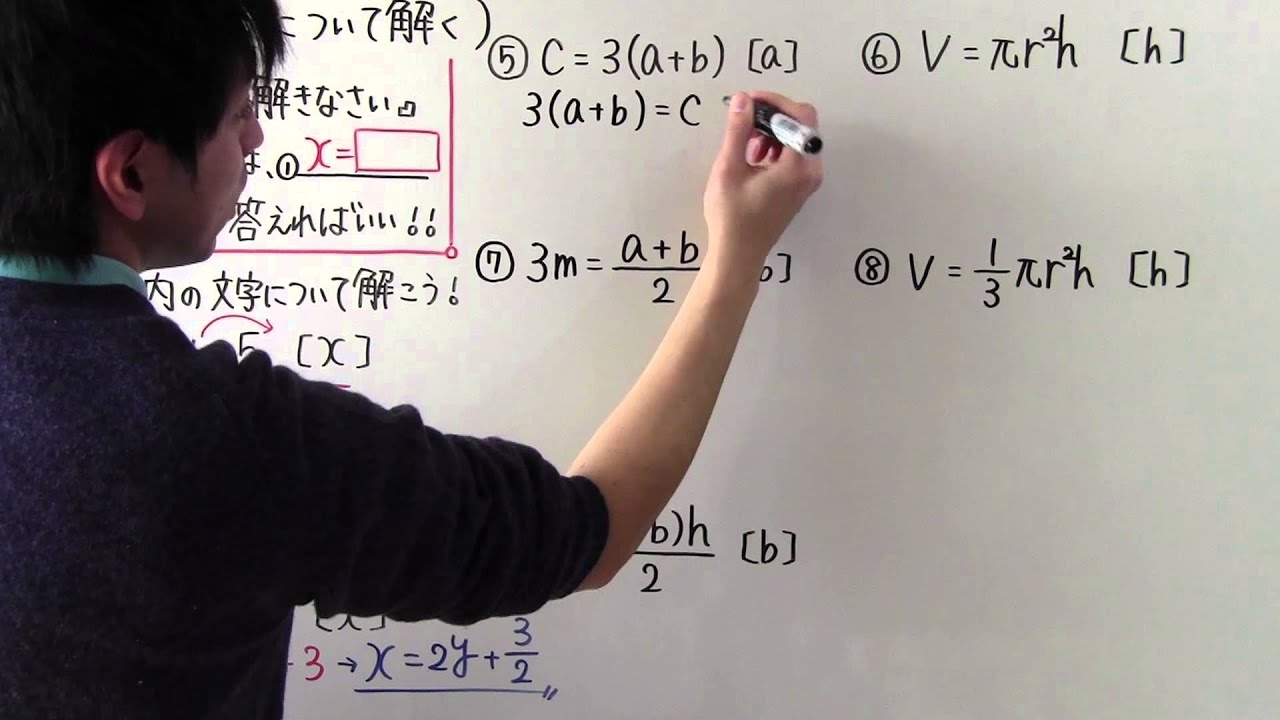 について解く)
解きなさい。』
、① x=
答えればいい!!
内の文字について解こう!
5 [x]
[x]
3 → x=2y+3/2
⑤ C=3(a+b) [a]
3(a+b)=C
⑥ V=πr²h [h]
⑦ 3m=(a+b)/2 b]
⑧ V=1/3πr²h [h]
b)h/2 [b]